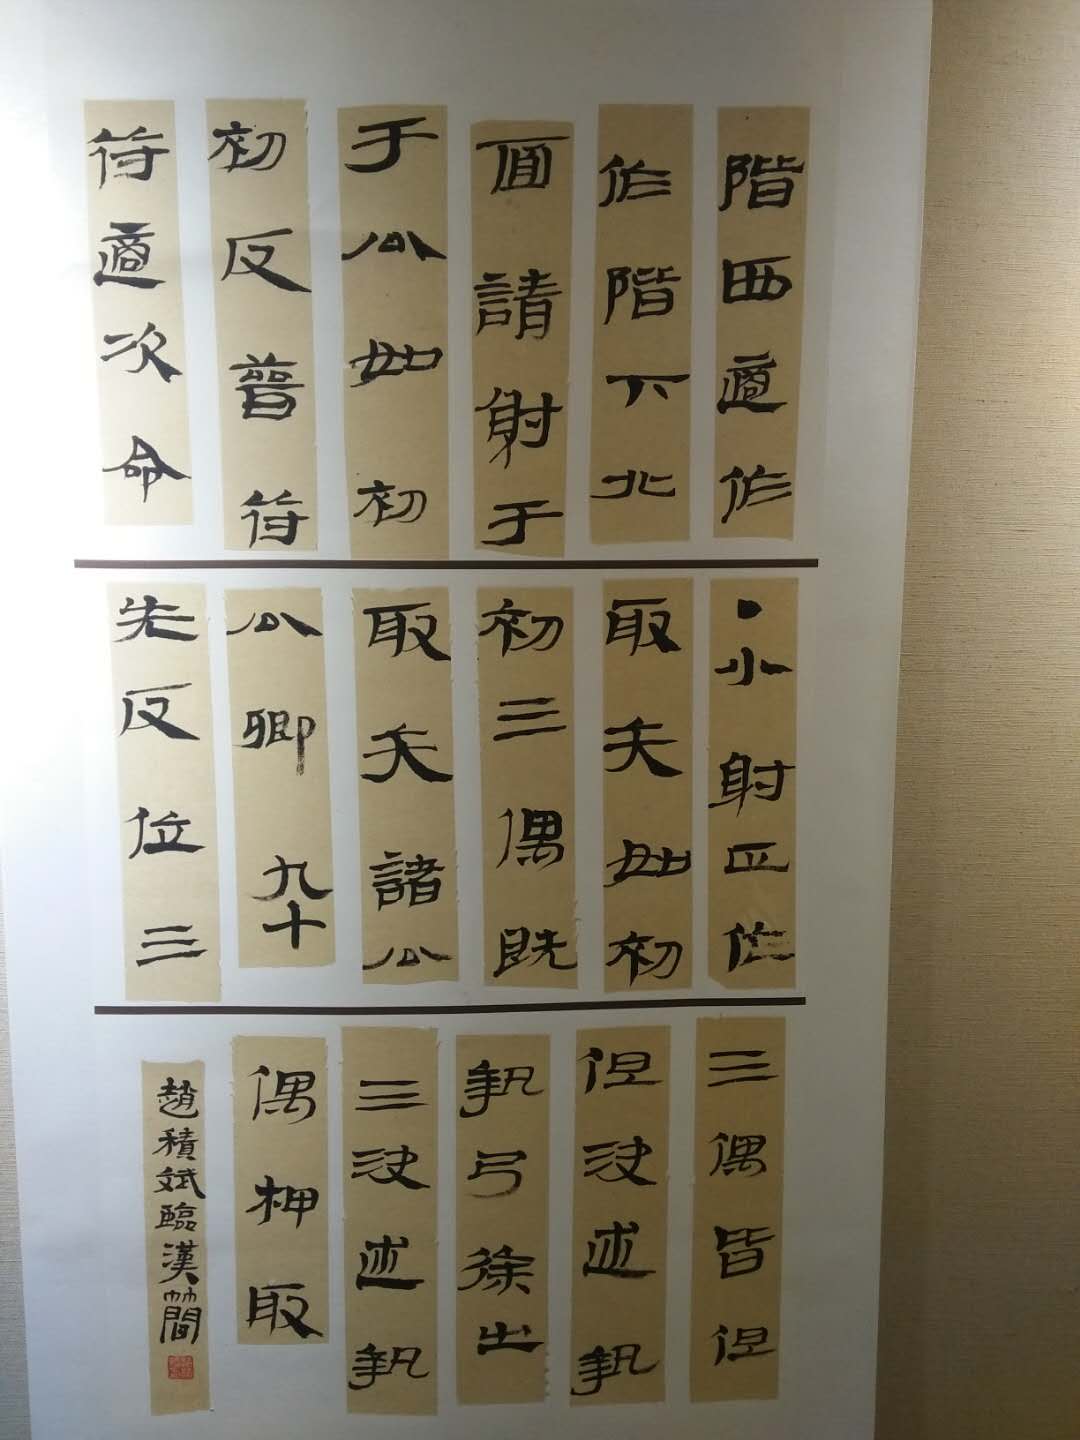 階西適作
作階下北
面請射于
于公如初
初反普符
符適次命
•小射正作
取矢如初
初三偶既
取矢諸公
公卿 九十
先反位三
三偶皆袒
袒決遂執
執弓徐出
三決遂執
偶柙取
趙積斌臨漢簡